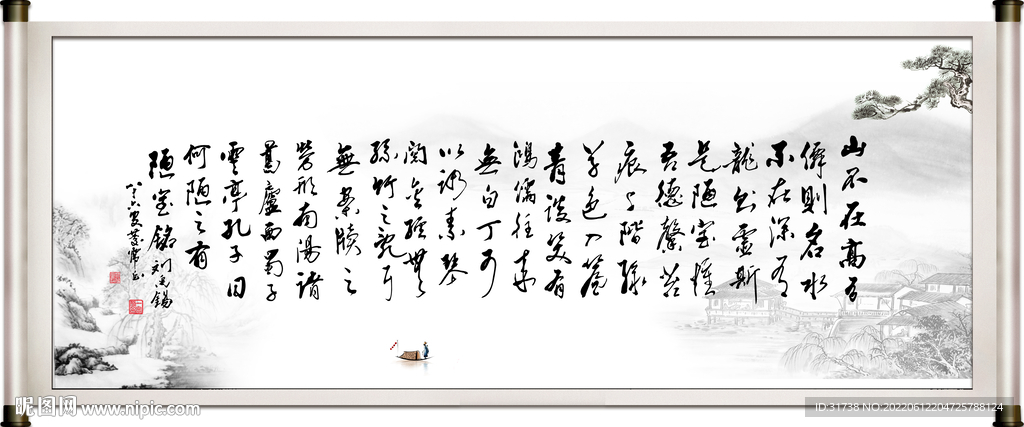 山不在高有
僊則名水
不在深有
龍則靈斯
是陋室惟
吾德馨苔
痕上階綠
草色入簾
青談笑有
鴻儒往來
無白丁可
以調素琴
閱金經無
絲竹之亂耳
無案牘之
勞形南陽諸
葛廬西蜀子
雲亭孔子曰
何陋之有
陋室銘 刘禹錫
昵图网 www.nipic.com
ID:31738 NO:20220612204725788124